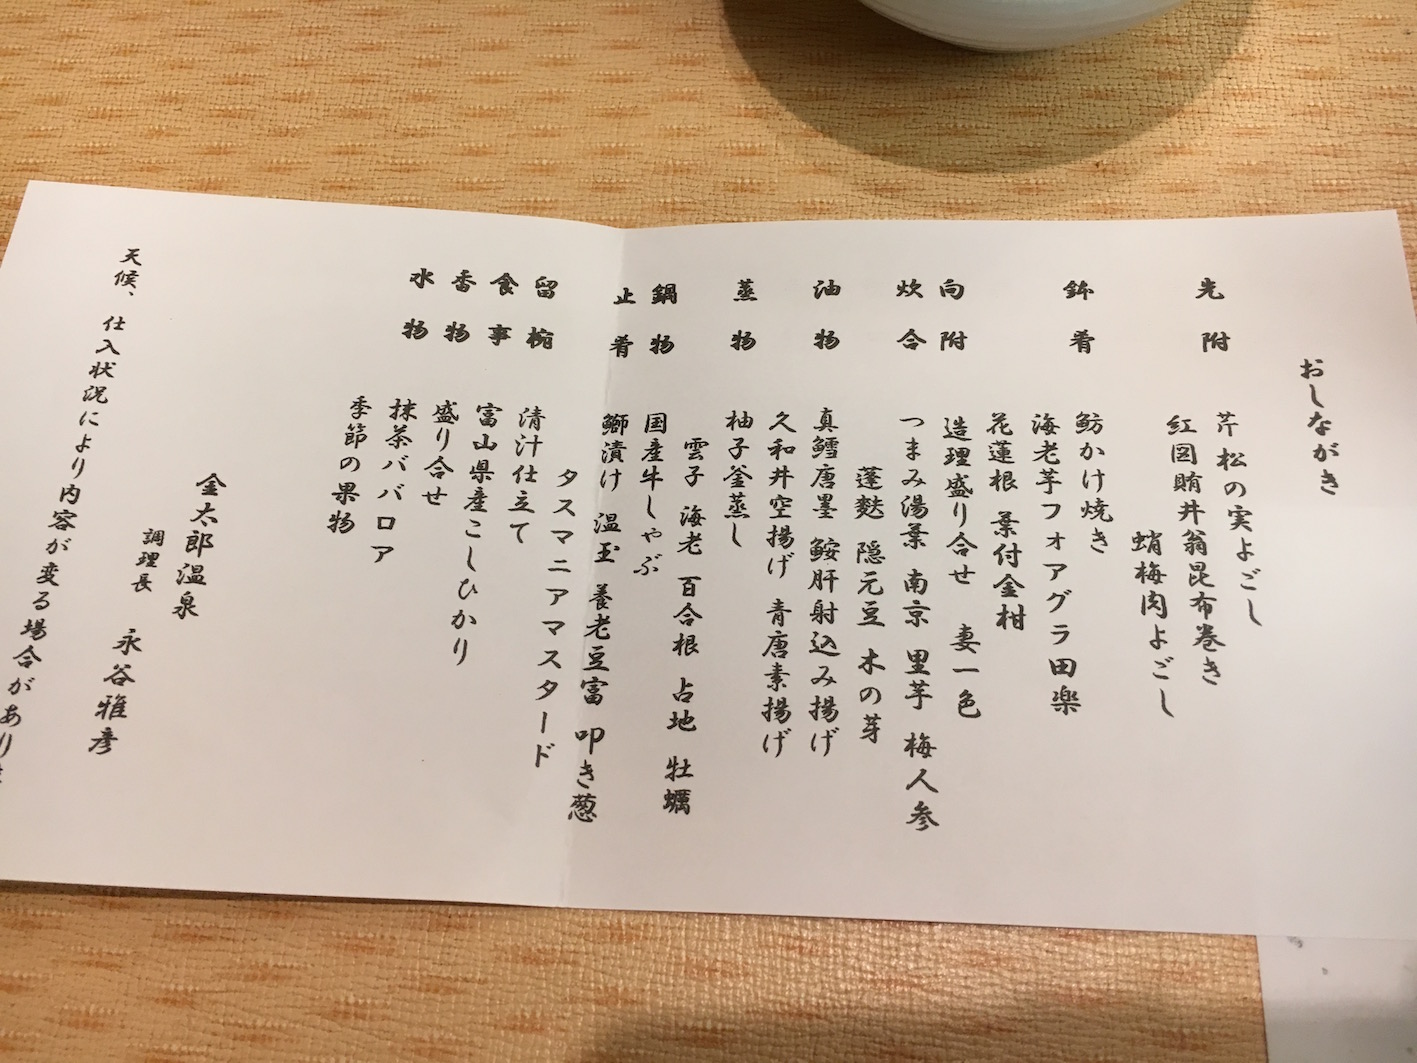 おしながき
光附
芹松の実よごし
紅図賄丼翁昆布巻き
蛸梅肉よごし
鉢肴
魴かけ焼き
海老芋フォアグラ田楽
花蓮根 葉付金柑
向附
造理盛り合せ 妻一色
炊合
つまみ湯葉 南京 里芋 梅人参
蓬麩 隠元豆 木の芽
油物
真鱈唐墨 鮟肝射込み揚げ
久和井空揚げ 青唐素揚げ
蒸物
柚子釜蒸し
雲子 海老 百合根 占地 牡蠣
鍋物
国産牛しゃぶ
止肴
鰤漬け 温玉 養老豆富 叩き葱
タスマニアマスタード
留椀
清汁仕立て
食事
富山県産こしひかり
香物
盛り合せ
水物
抹茶ババロア
季節の果物
金太郎温泉
調理長 永谷雅彦
天候、仕入状況により内容が変る場合があり